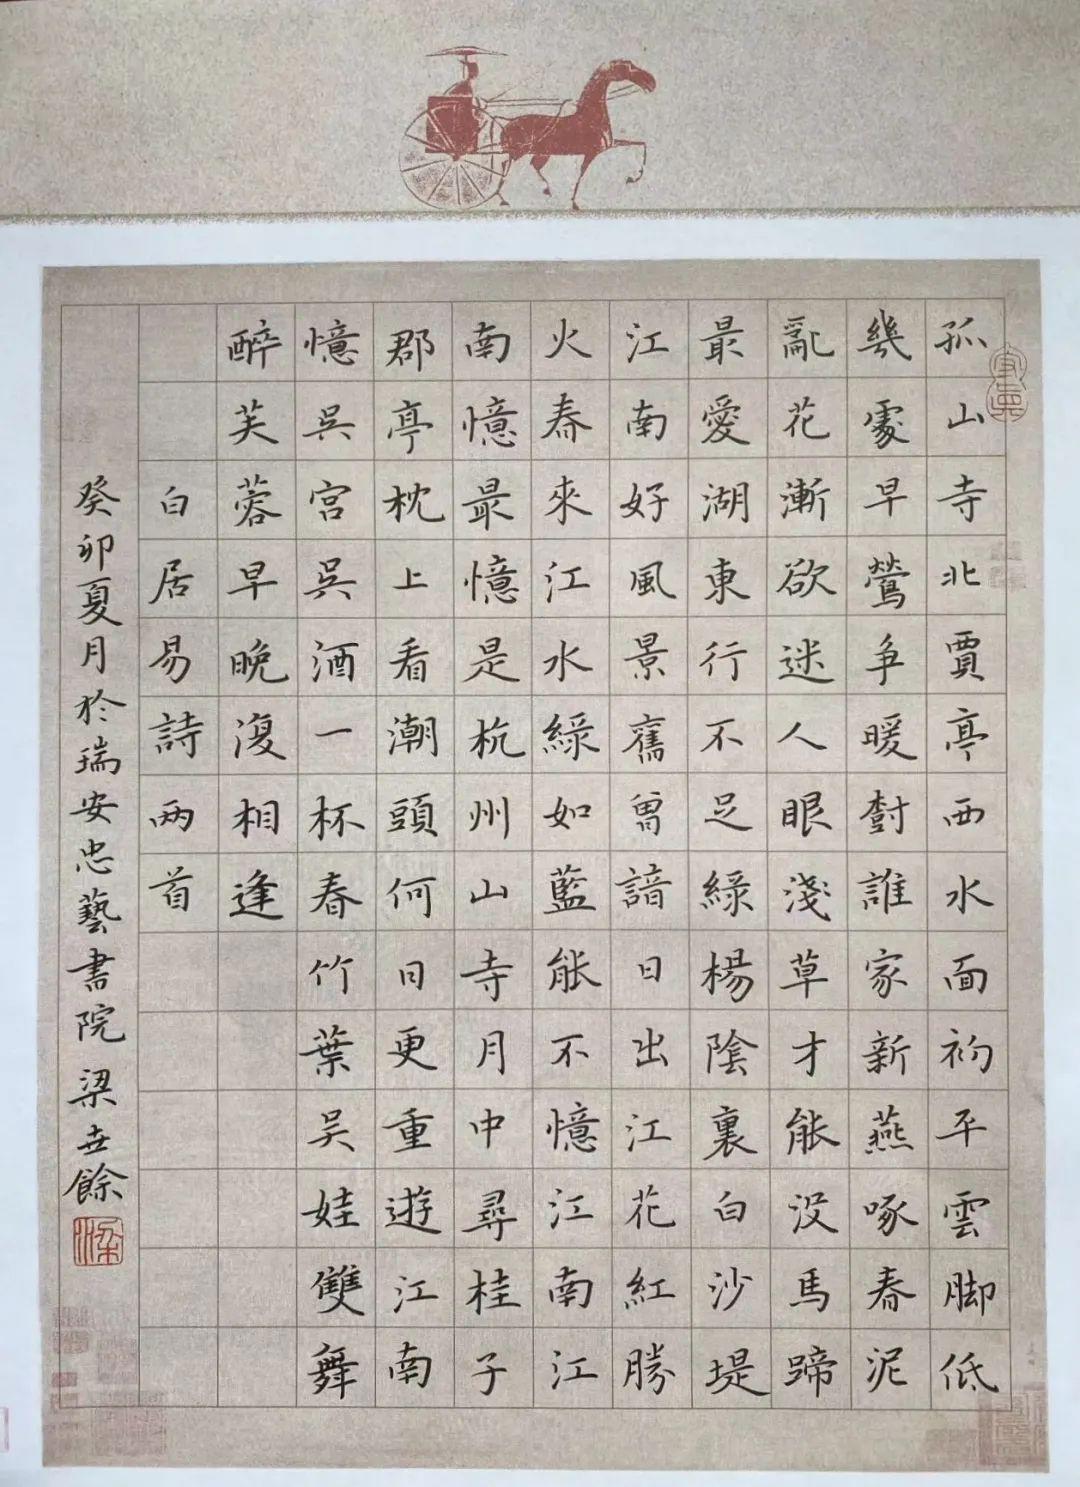 孤山寺北賈亭西水面初平雲脚低
幾處早鶯争暖樹誰家新燕啄春泥
亂花漸欲迷人眼淺草才能没馬蹄
最愛湖東行不足綠楊陰裏白沙堤
江南好風景舊曾諳日出江花紅勝
火春來江水綠如藍能不憶江南江
南憶最憶是杭州山寺月中尋桂子
郡亭枕上看潮頭何日更重遊江南
憶吳宮吳酒一杯春竹葉吳娃雙舞
醉芙蓉早晚復相逢
白居易詩兩首
癸卯夏月於瑞安忠藝書院 梁世餘